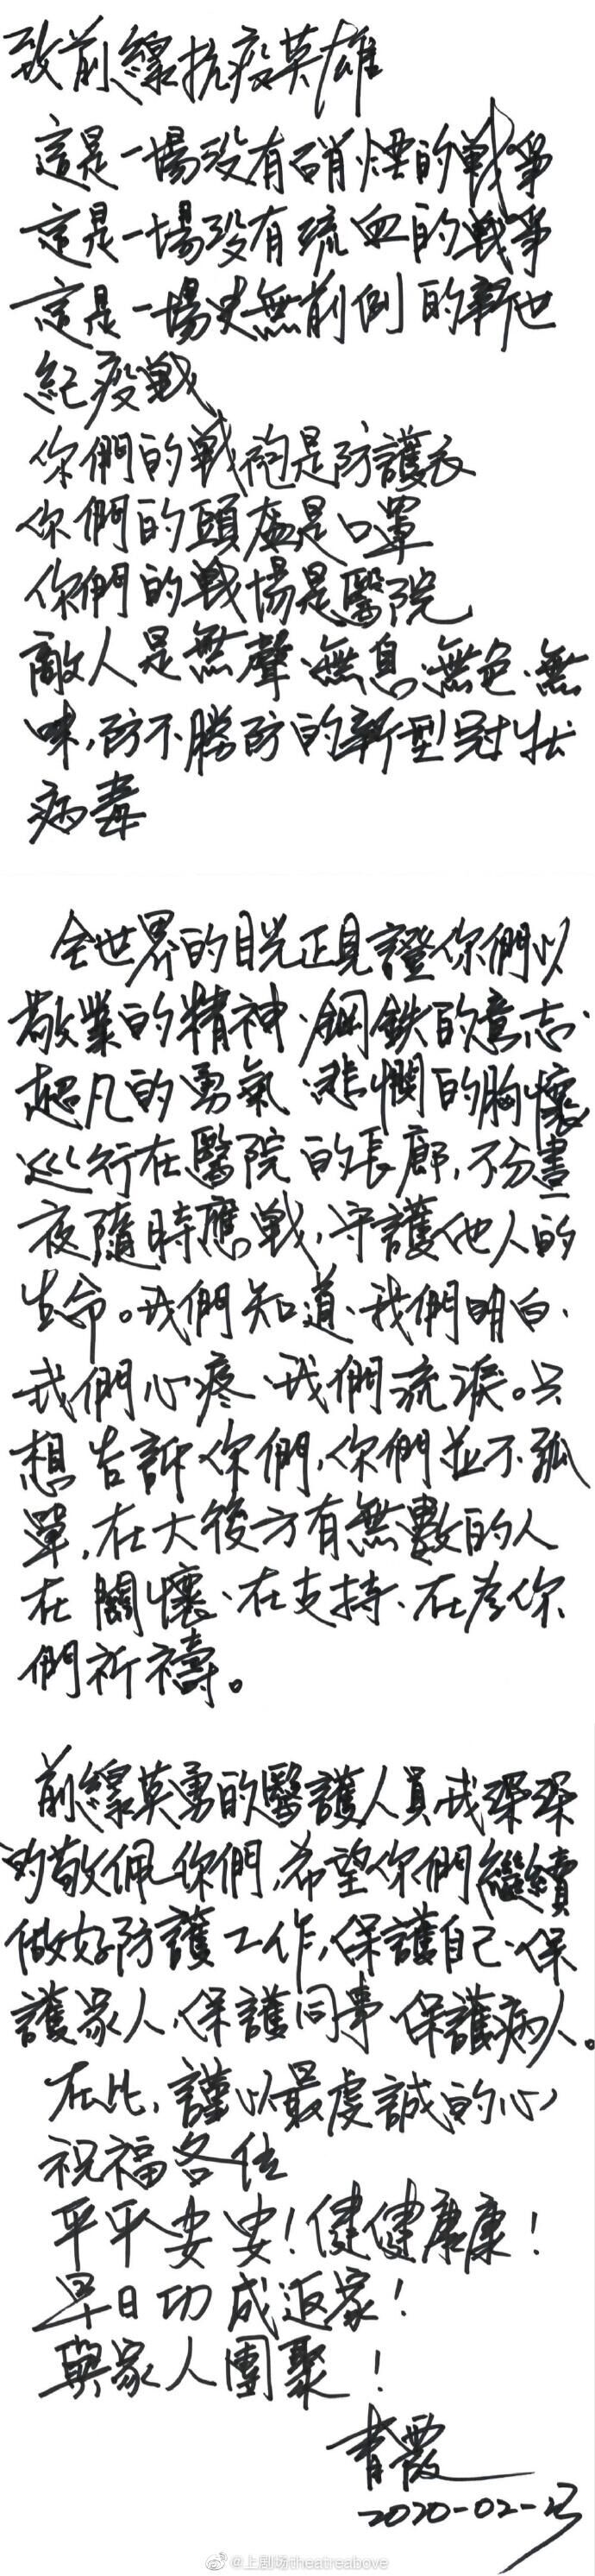 致前線抗疫英雄
這是一場没有硝煙的戰爭
這是一場没有流血的戰爭
這是一場史無前例的新世
紀疫戰
你們的戰袍是防護衣
你們的頭盔是口罩
你們的戰場是醫院
敵人是無聲、無息、無色、無
味，防不勝防的新型冠狀
病毒
全世界的目光正見證你們以
敬業的精神、鋼鉄的意志、
超凡的勇氣、悲憫的胸懷
巡行在醫院的長廊，不分晝
夜隨時應戰，守護他人的
生命。我們知道、我們明白、
我們心疼、我們流淚。只
想告訴你們，你們並不孤
單，在大後方有無數的人
在關懷、在支持、在為你
們祈禱。
前線英勇的醫護人員，我深深
的敬佩你們，希望你們繼續
做好防護工作，保護自己、保
護家人、保護同事、保護病人。
在此，謹以最虔誠的心
祝福各位
平平安安！健健康康！
早日功成返家！
與家人團聚！
青霞
2020-02-
@上剧场theatreabove